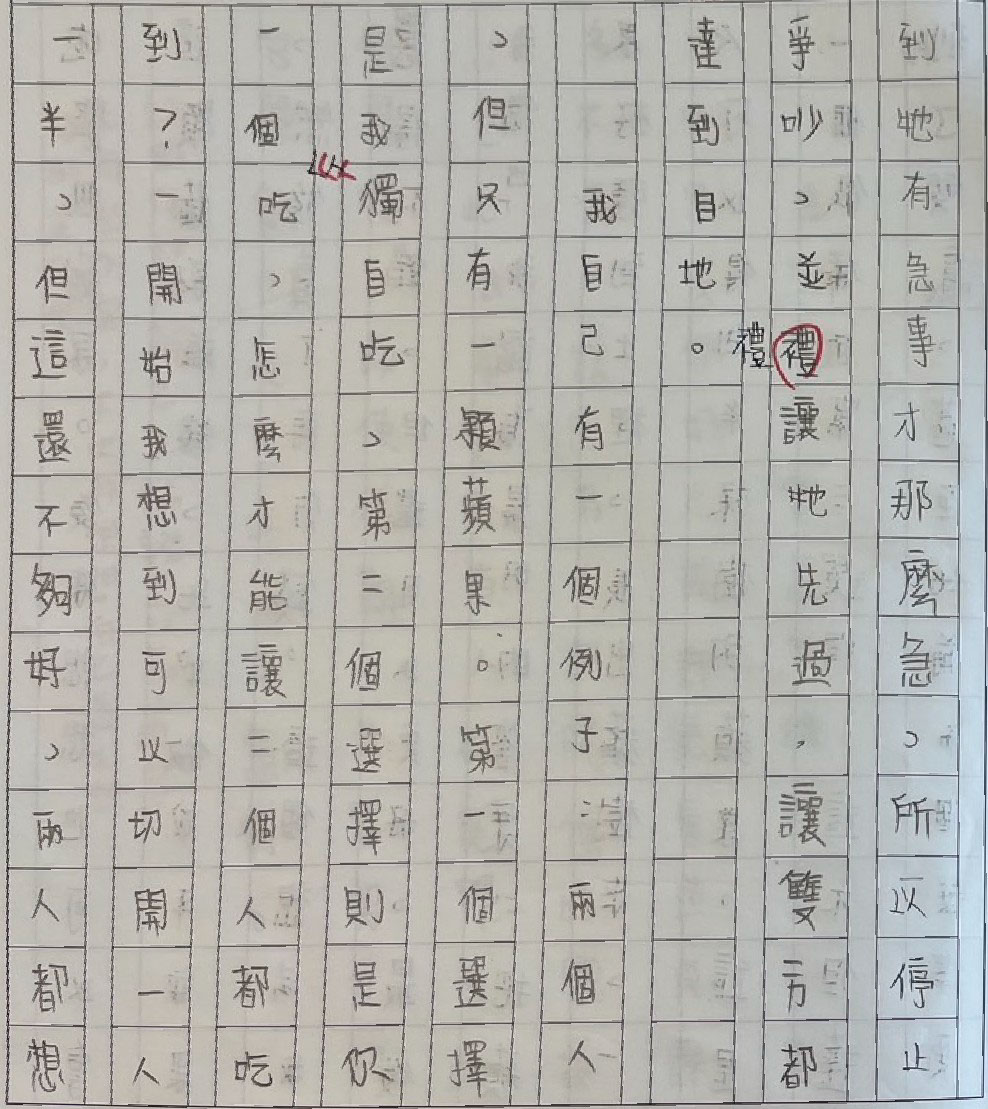 到牠有急事才那麼急，所以停止
爭吵，並禮讓牠先過，讓雙方都
禮
達到目地。
我自己有一個例子：兩個人
，但只有一顆蘋果。第一個選擇
是我獨自吃，第二個選擇則是你
一個吃，怎麼才能讓二個人都吃
到？一開始我想到可以切開一人
一半，但這還不夠好，兩人都想